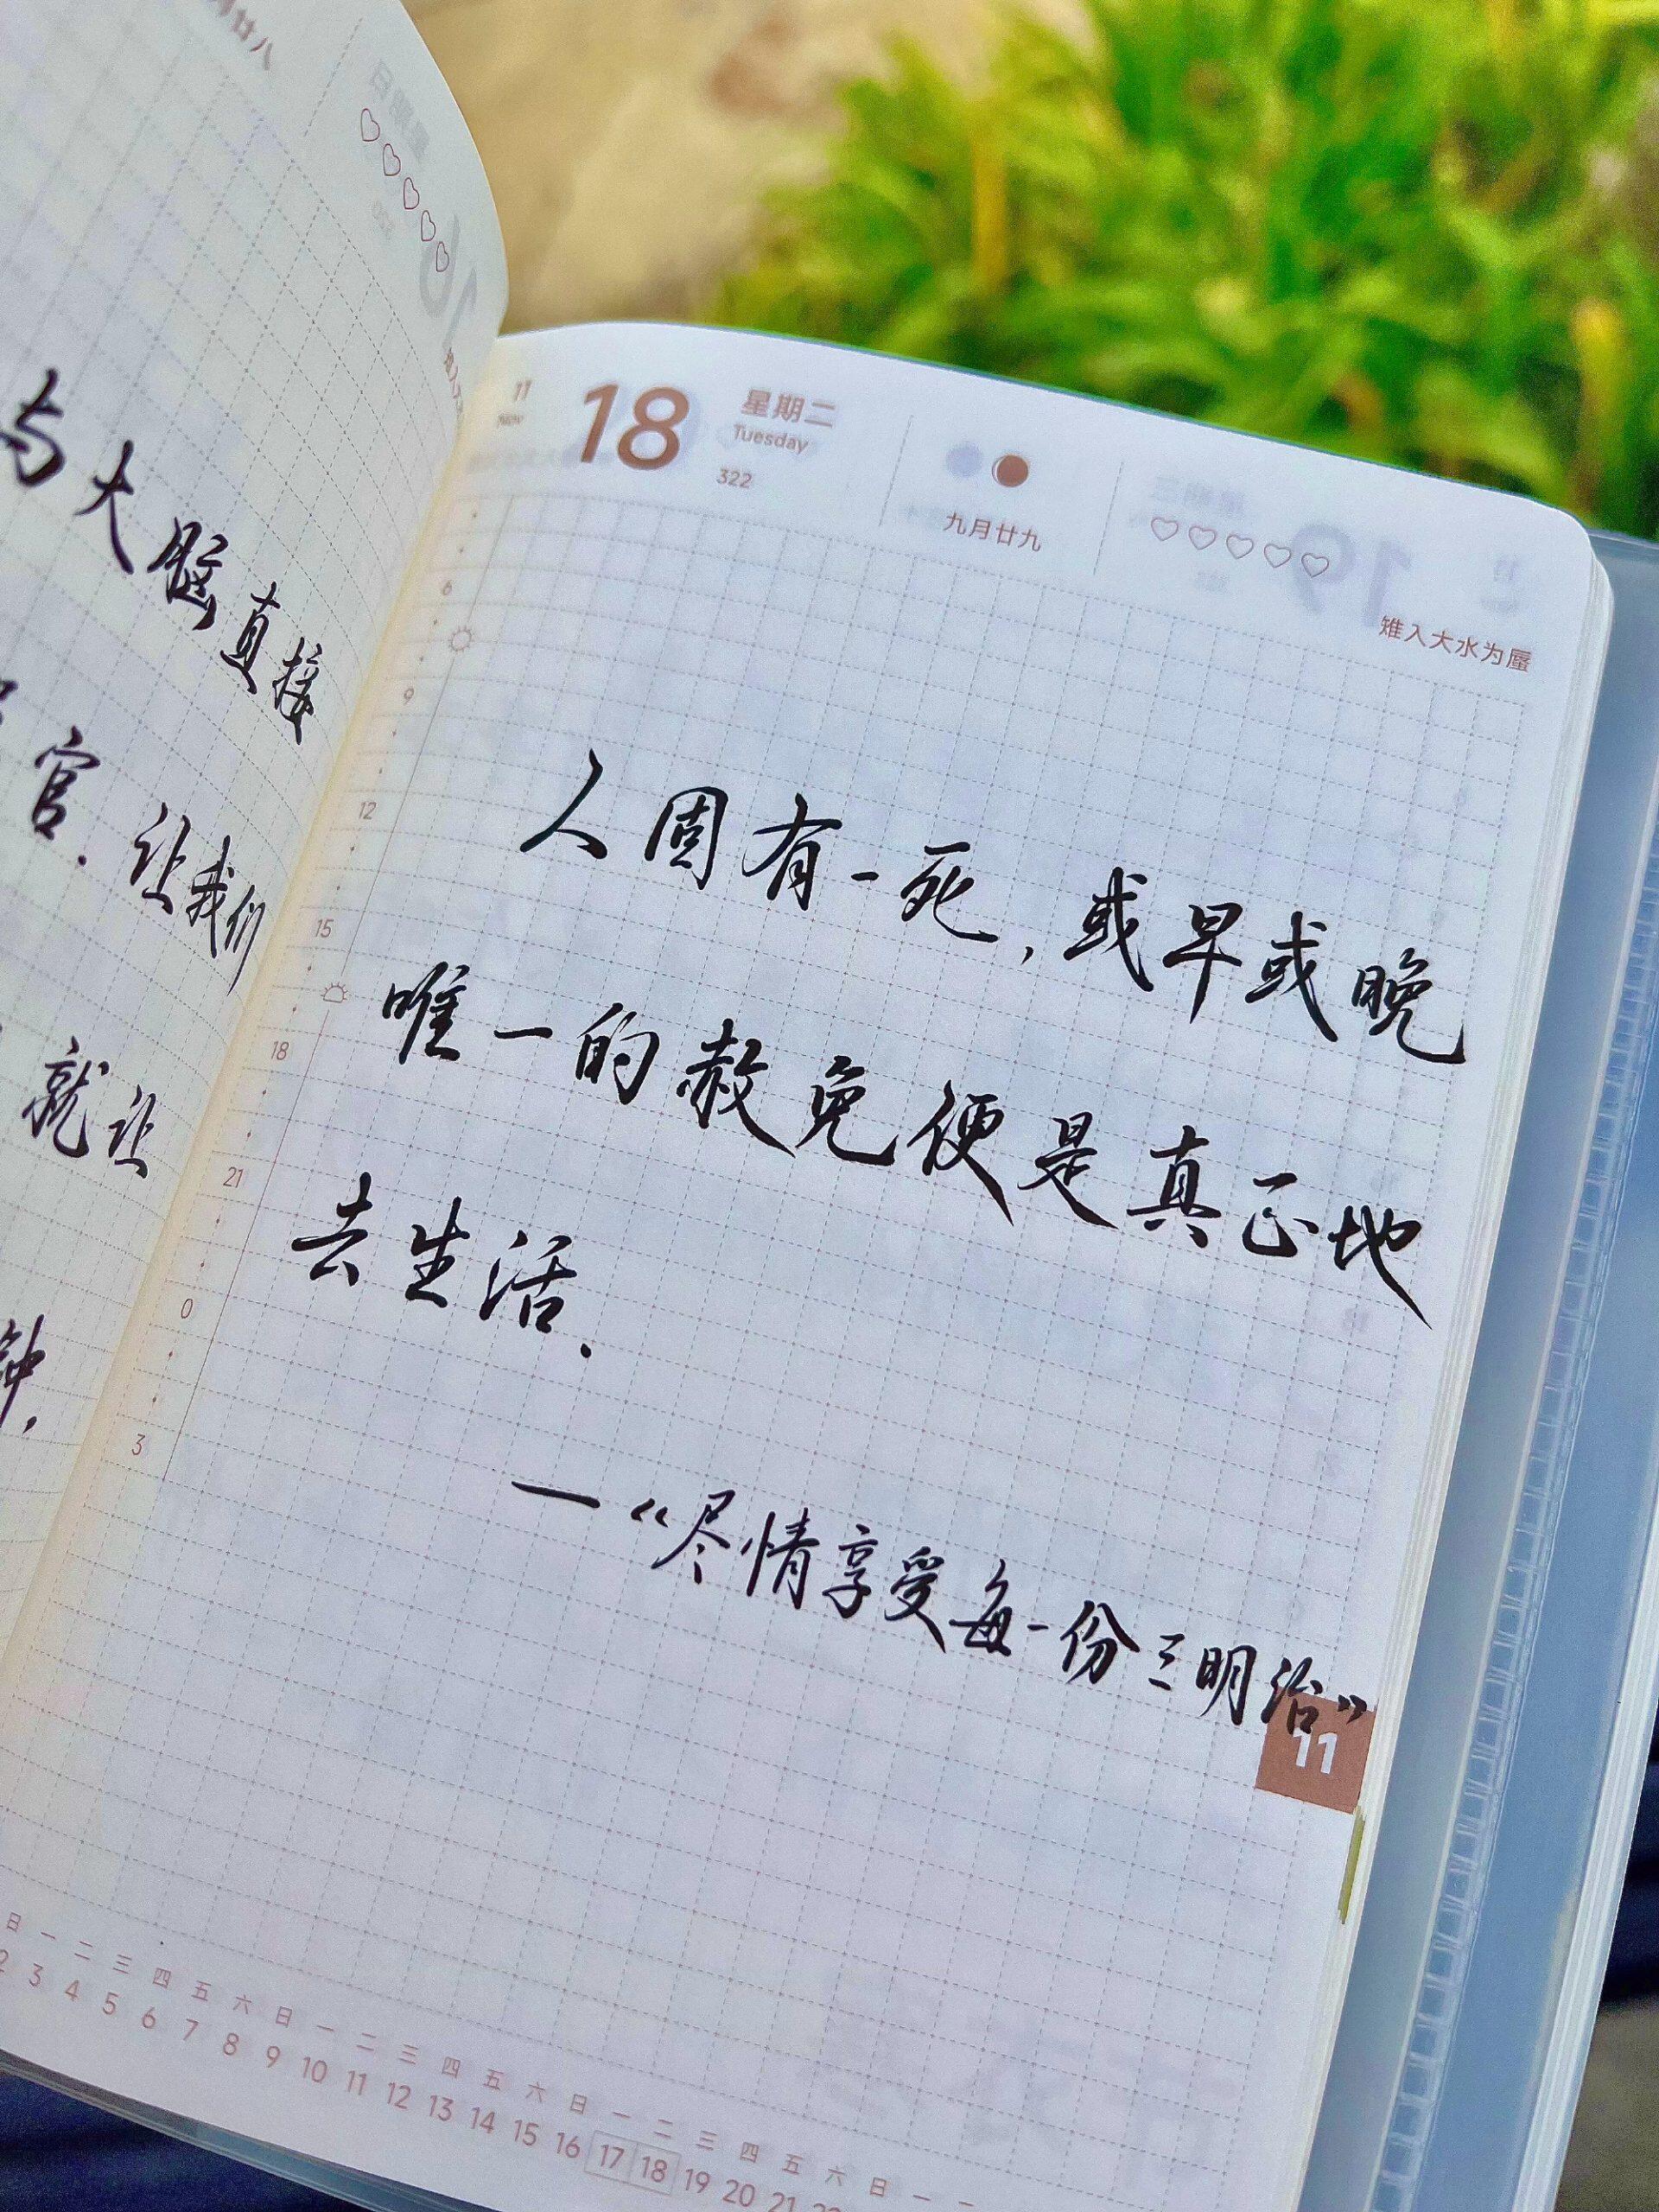 与大脑直接
官.让我们
就让
钟,
11
Nov
18
星期二
Tuesday
322
九月廿九
雉入大水为蜃
6
9
12
15
18
21
0
3
人固有一死,或早或晚
唯一的赦免便是真正地
去生活.
—“尽情享受每一份三明治”
11
日 一 二 三 四 五 六 日 一 二 三 四 五 六 日 一 二 三 四 五 六 日 一
2 3 4 5 6 7 8 9 10 11 12 13 14 15 16 17 18 19 20 21